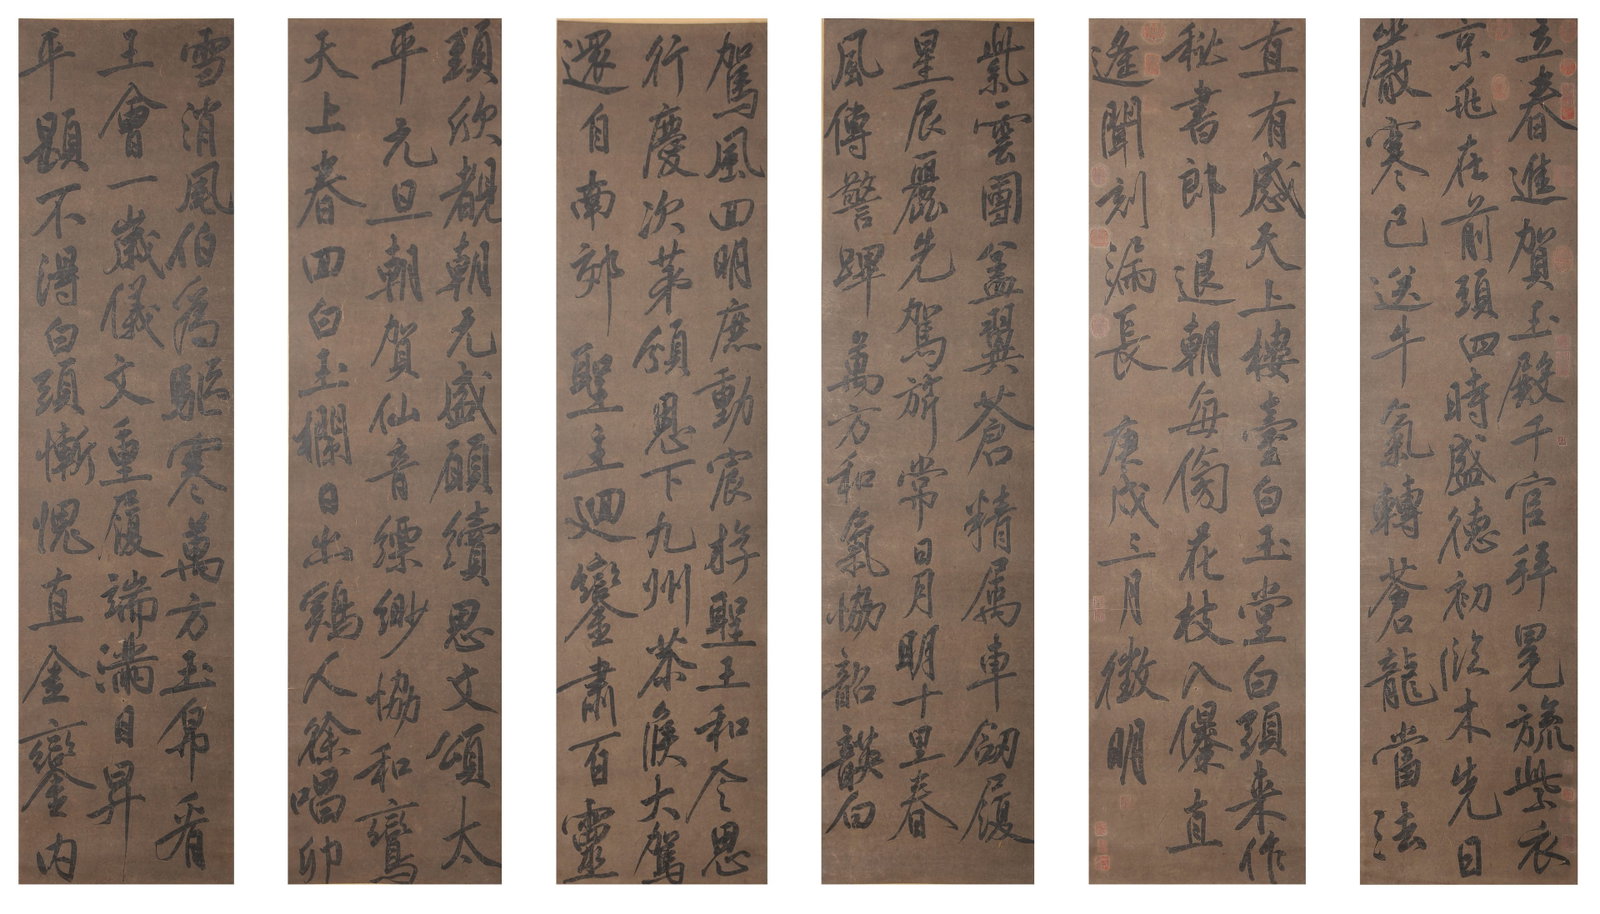 立春進賀玉殿千官拜冕旒紫衣
京兆在前頭四時盛德初臨木先日
嚴寒已送牛氣轉蒼龍當法
直有感天上樓臺白玉堂白頭来作
秘書郎退朝每傍花枝入儤直
遙聞刻漏長庚戌三月徵明
紫雲團蓋翼蒼精屬車劒履
星辰麗先駕旂常日月明十里春
風傳警蹕萬方和氣協韶韺白
駕風回明庶動宸游聖王和令思
行慶次第頒恩下九州恭候大駕
還自南郊聖主迴鑾肅百靈
頸欣覩朝元盛願續思文頌太
平元旦朝賀仙音縹緲協和鸞
天上春回白玉欄日出鷄人徐唱卯
雪消風伯為驅寒萬方玉帛看
王會一歲儀文重履端滿目昇
平題不得白頭慚愧直金鑾內